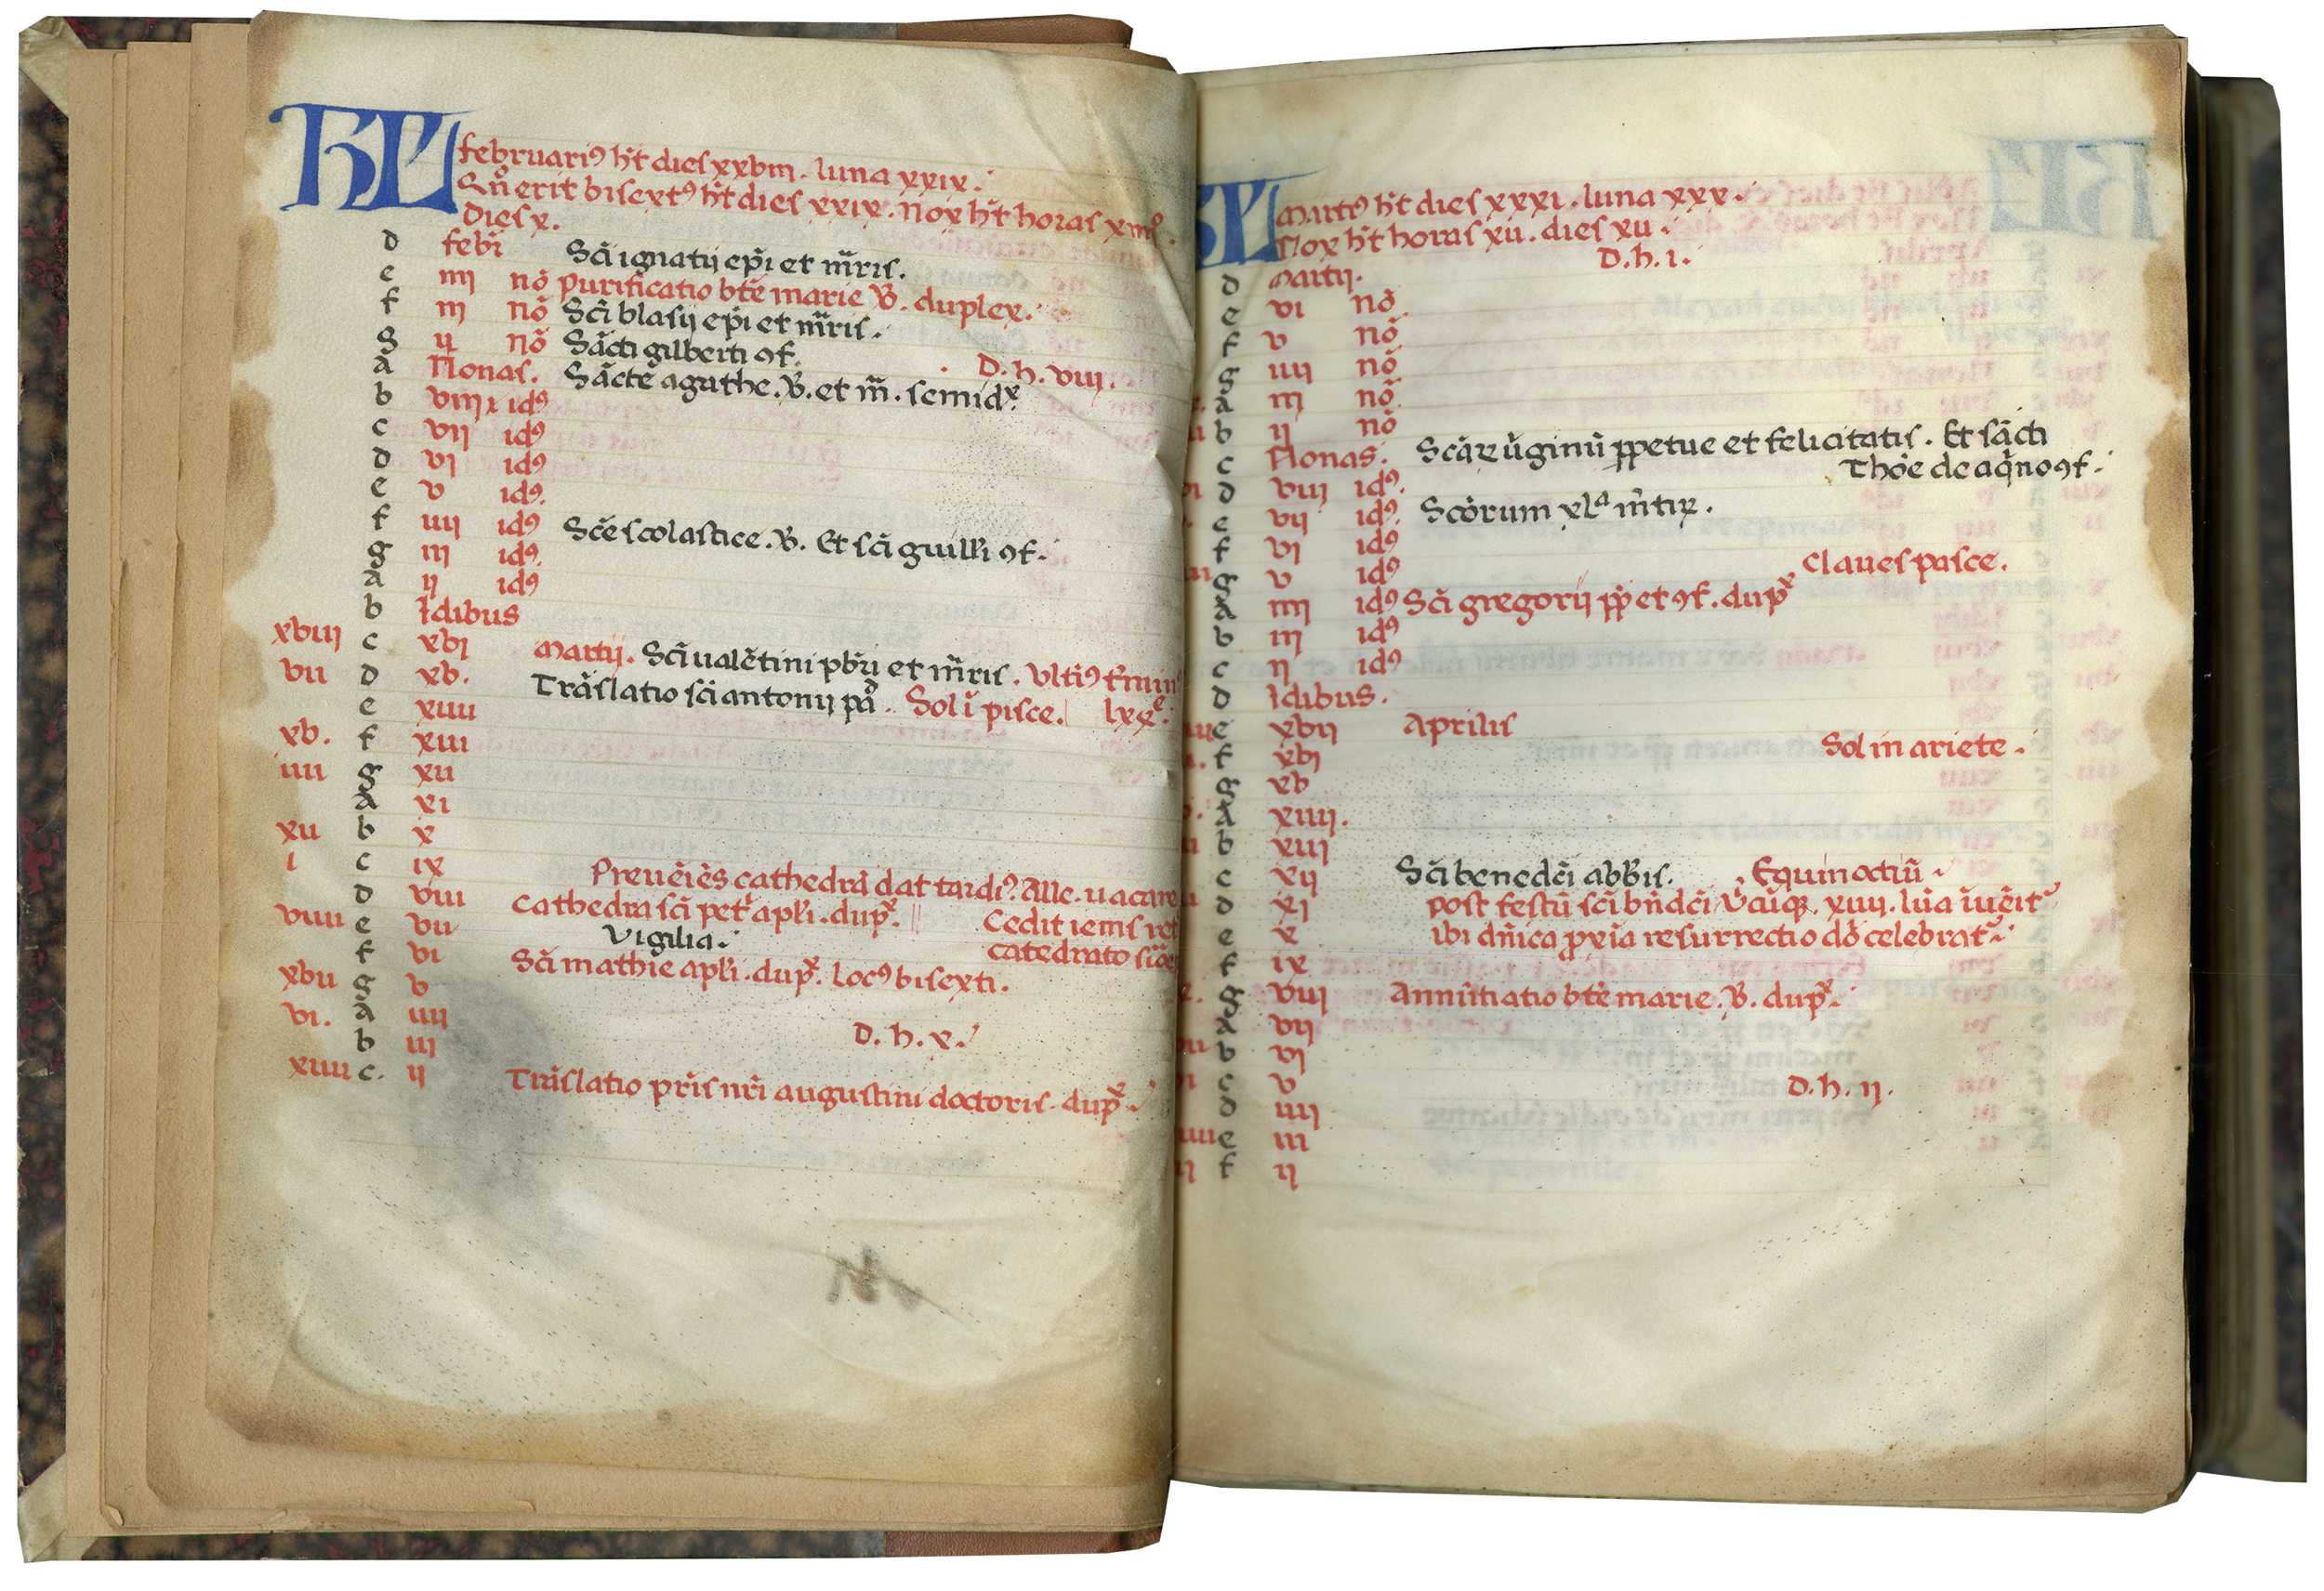 KL februari9 h't dies xxviii. luna xxix.
Sin erit bisext9 h't dies xxix. nox h't horas xiiii.
dies x.
d febr Sci ignatij epi et mris.
e iiij no purificatio bte marie V. duplex.
f iij no Sci blasij epi et mris.
g ij no Sacti gilberti 9f.
a Nonas. Sacte agathe. V. et m. semidx. D. h. viij.
b viij id9
c vij id9
d vj id9
e v id9.
f iiij id9 Sce scolastice. V. Et sci guill'i 9f.
g iij id9.
a ij id9
b Idibus
xviij c xvj martij. Sci ualetini pbri et mris. Vlti9
vii d xv. Traslatio sci antonij pa. Sol i pisce. lxxe.
e xiiii
xv. f xiii
iiii g xii
a xi
xii b x
i c ix Preueies cathedra dat tardi9. Alle. uacare
d viii Cathedra sci petr apli. dupx. Cedit iems
viiii e vii Vigilia. catedrato
f vi Sci mathie apli. dupx. Loc9 bisexti.
xvii g v
vi. a iiij
b iij D. h. x.
xiiii c. ij Traslatio pris nri augustini doctoris. dupx.
KL mart9 h't dies xxxi. luna xxx.
Nox h't horas xii. dies xii.
d martij. D. h. i.
e vi no
f v no
g iiij no
a iij no
b ij no
c Nonas. Scar uginu ppetue et felicitatis. Et sacti
Thoe de aqno 9f.
d viij id9.
e vij id9. Scorum xla mtir.
f vj id9
g v id9 Claues pasce.
a iiij id9 Sci gregorij pp et 9f. dupx
b iij id9
c ij id9
d Idibus.
e xvij Aprilis
f xvj Sol in ariete.
g xv
a xiiij.
b xiij
c xij Sci benedci abbis. Equinoctiu
d xj post festu sci bndci Vcuq. xiiij. lua iueit
e x ibi dnica pxia resurrectio do celebrat
f ix
g viij Annutiatio bte marie. V. dupx.
a vij
b vj
c v D. h. ij.
d iiij
e iij
f ij